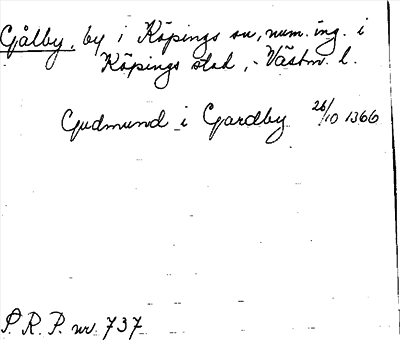 Gjålby, by i Köpings sn, num. ing. i
Köpings stad, - Västm. l.
Gudmund i Gardby 26/10 1366
P. R. P. nr. 737